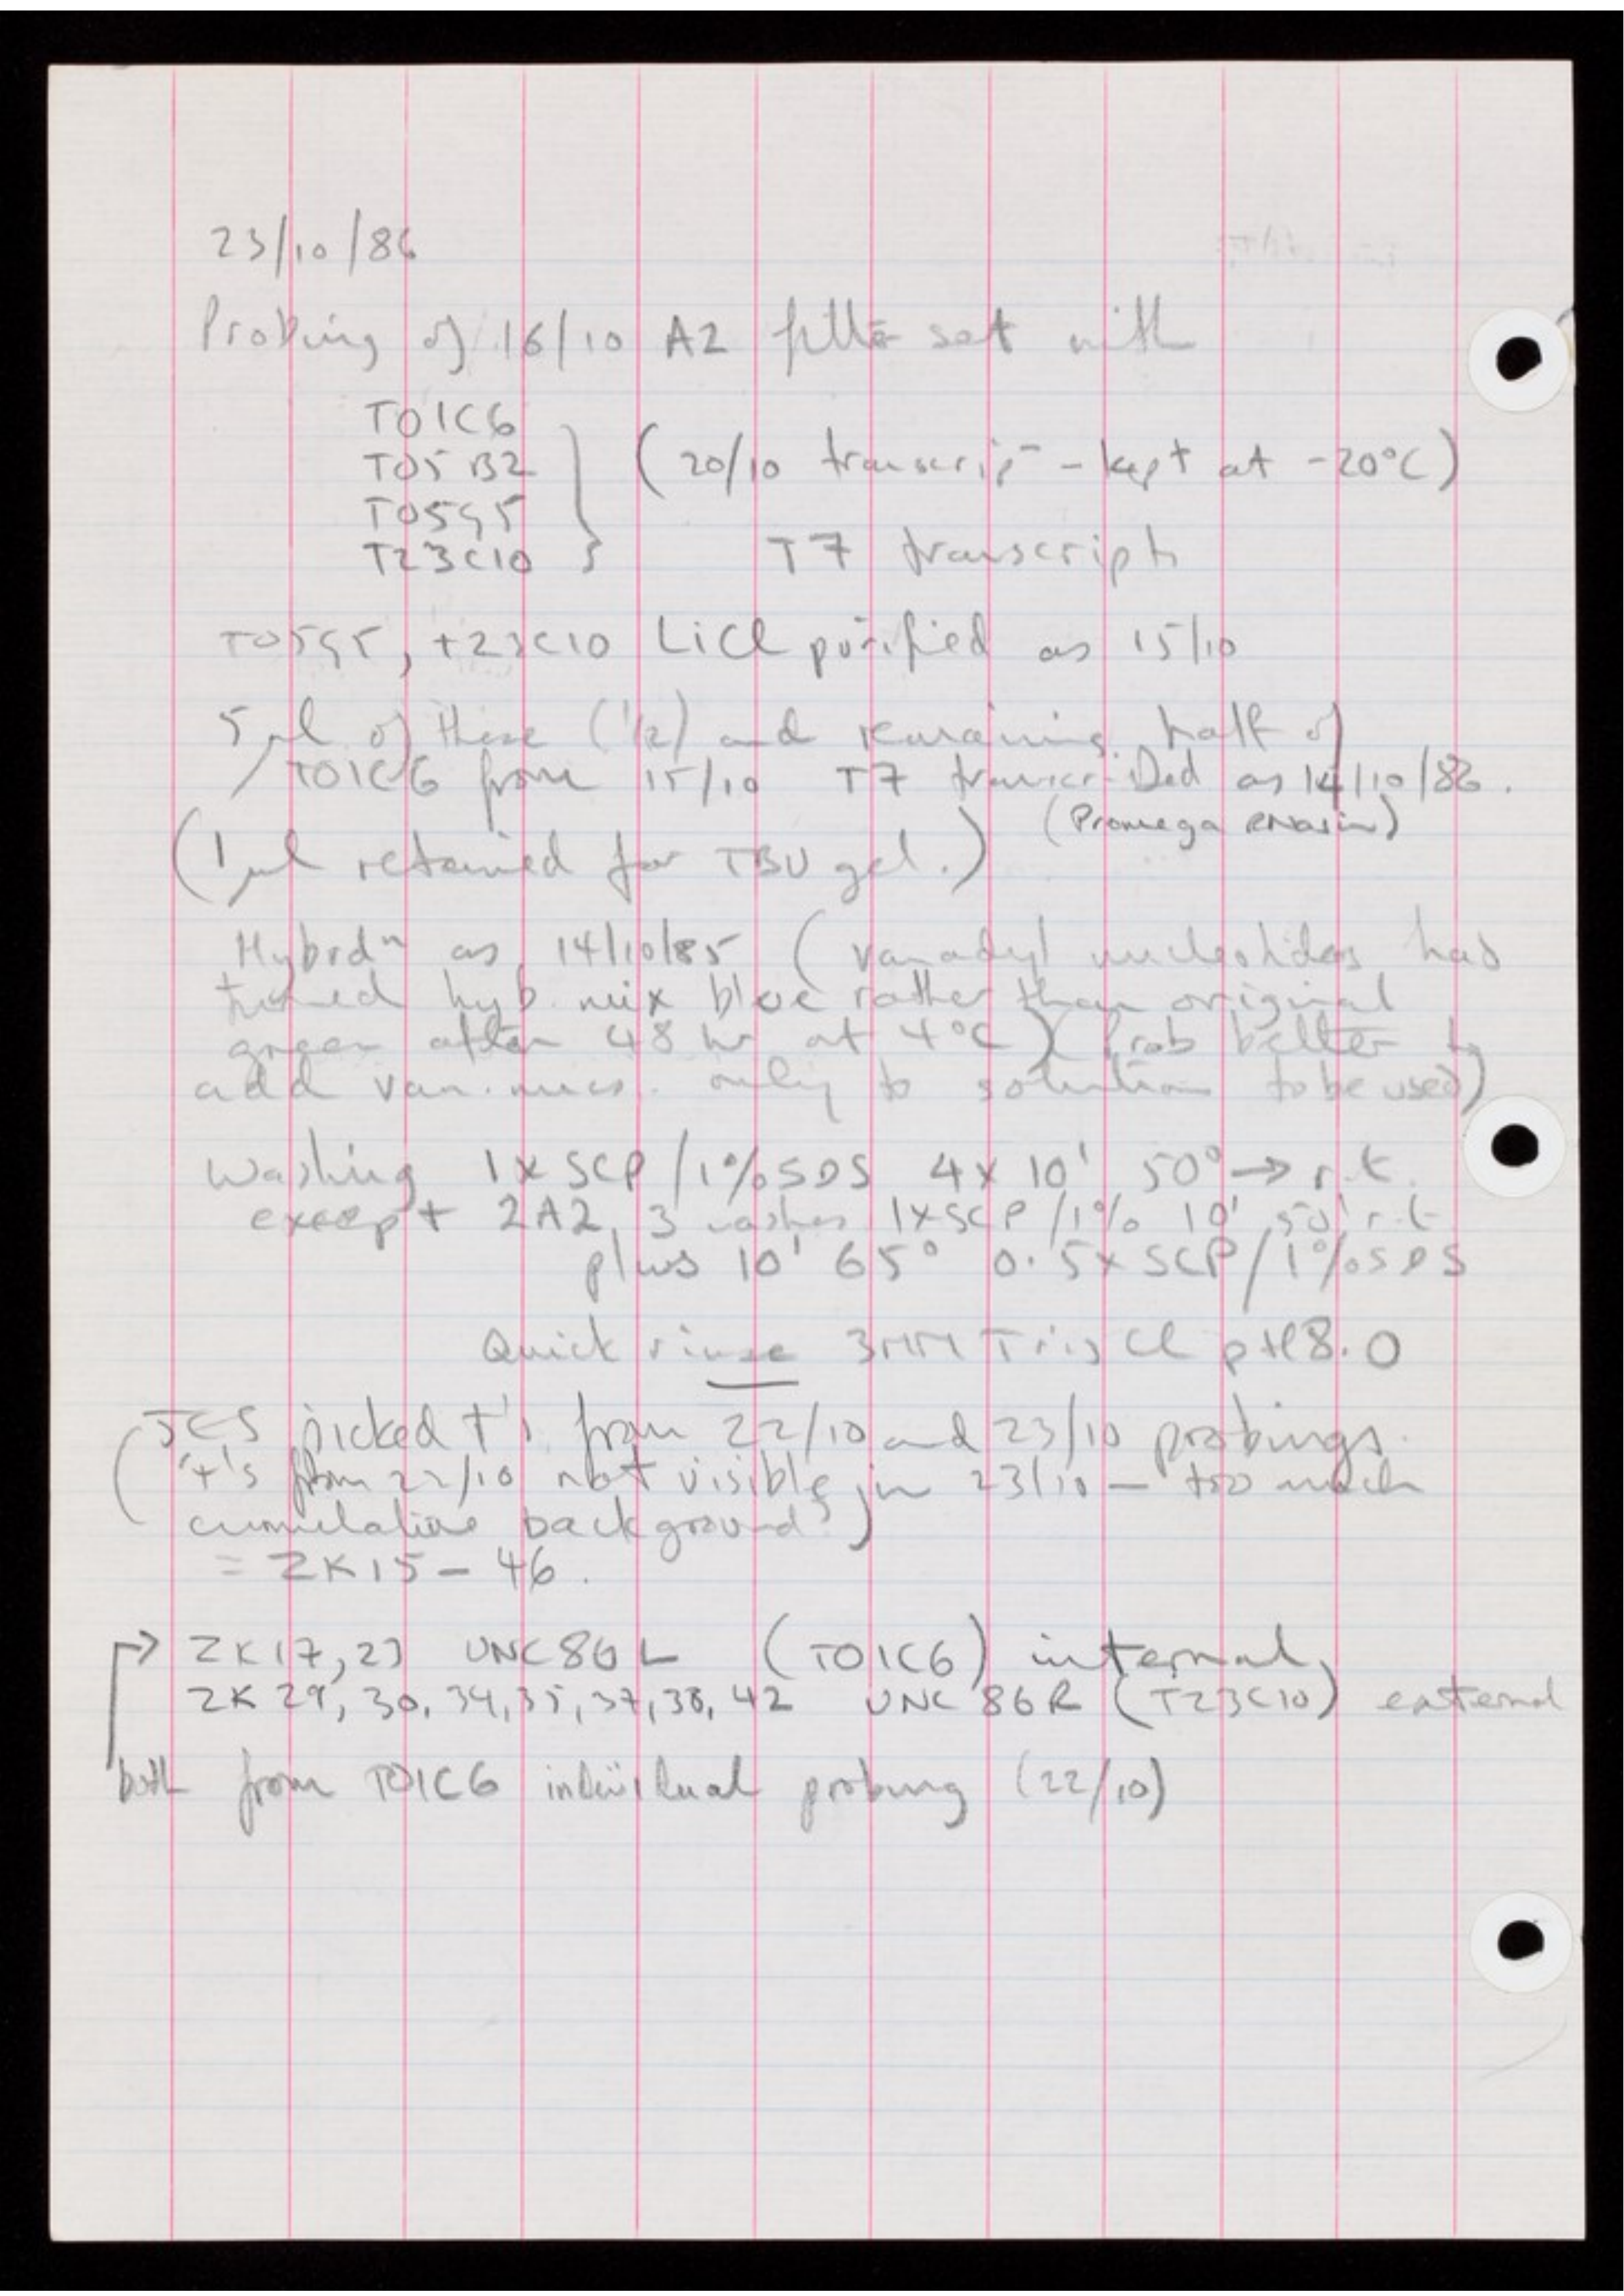 23/10/86
Probing of 16/10 A2 filter set with
T01C6
T05B2 (20/10 transcrip - kept at -20°C)
T05G5
T23C10 T7 transcripts
T05G5, T23C10 LiCl purified as 15/10
5 μl of these (1/2) and remaining half of
T01C6 from 15/10 T7 transcribed as 14/10/86.
(Promega RNasin)
(1 μl retained for TBU gel.)
Hybrdⁿ as 14/10/85 (vanadyl nucleotides had
turned hyb. mix blue rather than original
green after 48 hr at 4°C) (Prob better to
add van. nucs. only to solution to be used)
Washing 1x SCP/1% SDS 4x 10' 50° → r.t.
except 2A2, 3 washes 1xSCP/1% 10' 50° r.t.
plus 10' 65° 0.5x SCP/1% SDS
Quick rinse 3MM Tris Cl pH8.0
JES picked +'s from 22/10 and 23/10 probings.
('+'s from 22/10 not visible in 23/10 - too much
cumulative background?)
= ZK15-46.
→ ZK17,23 UNC86L (T01C6) internal
ZK29, 30, 34, 35, 37, 38, 42 UNC86R (T23C10) external
both from T01C6 individual probing (22/10)